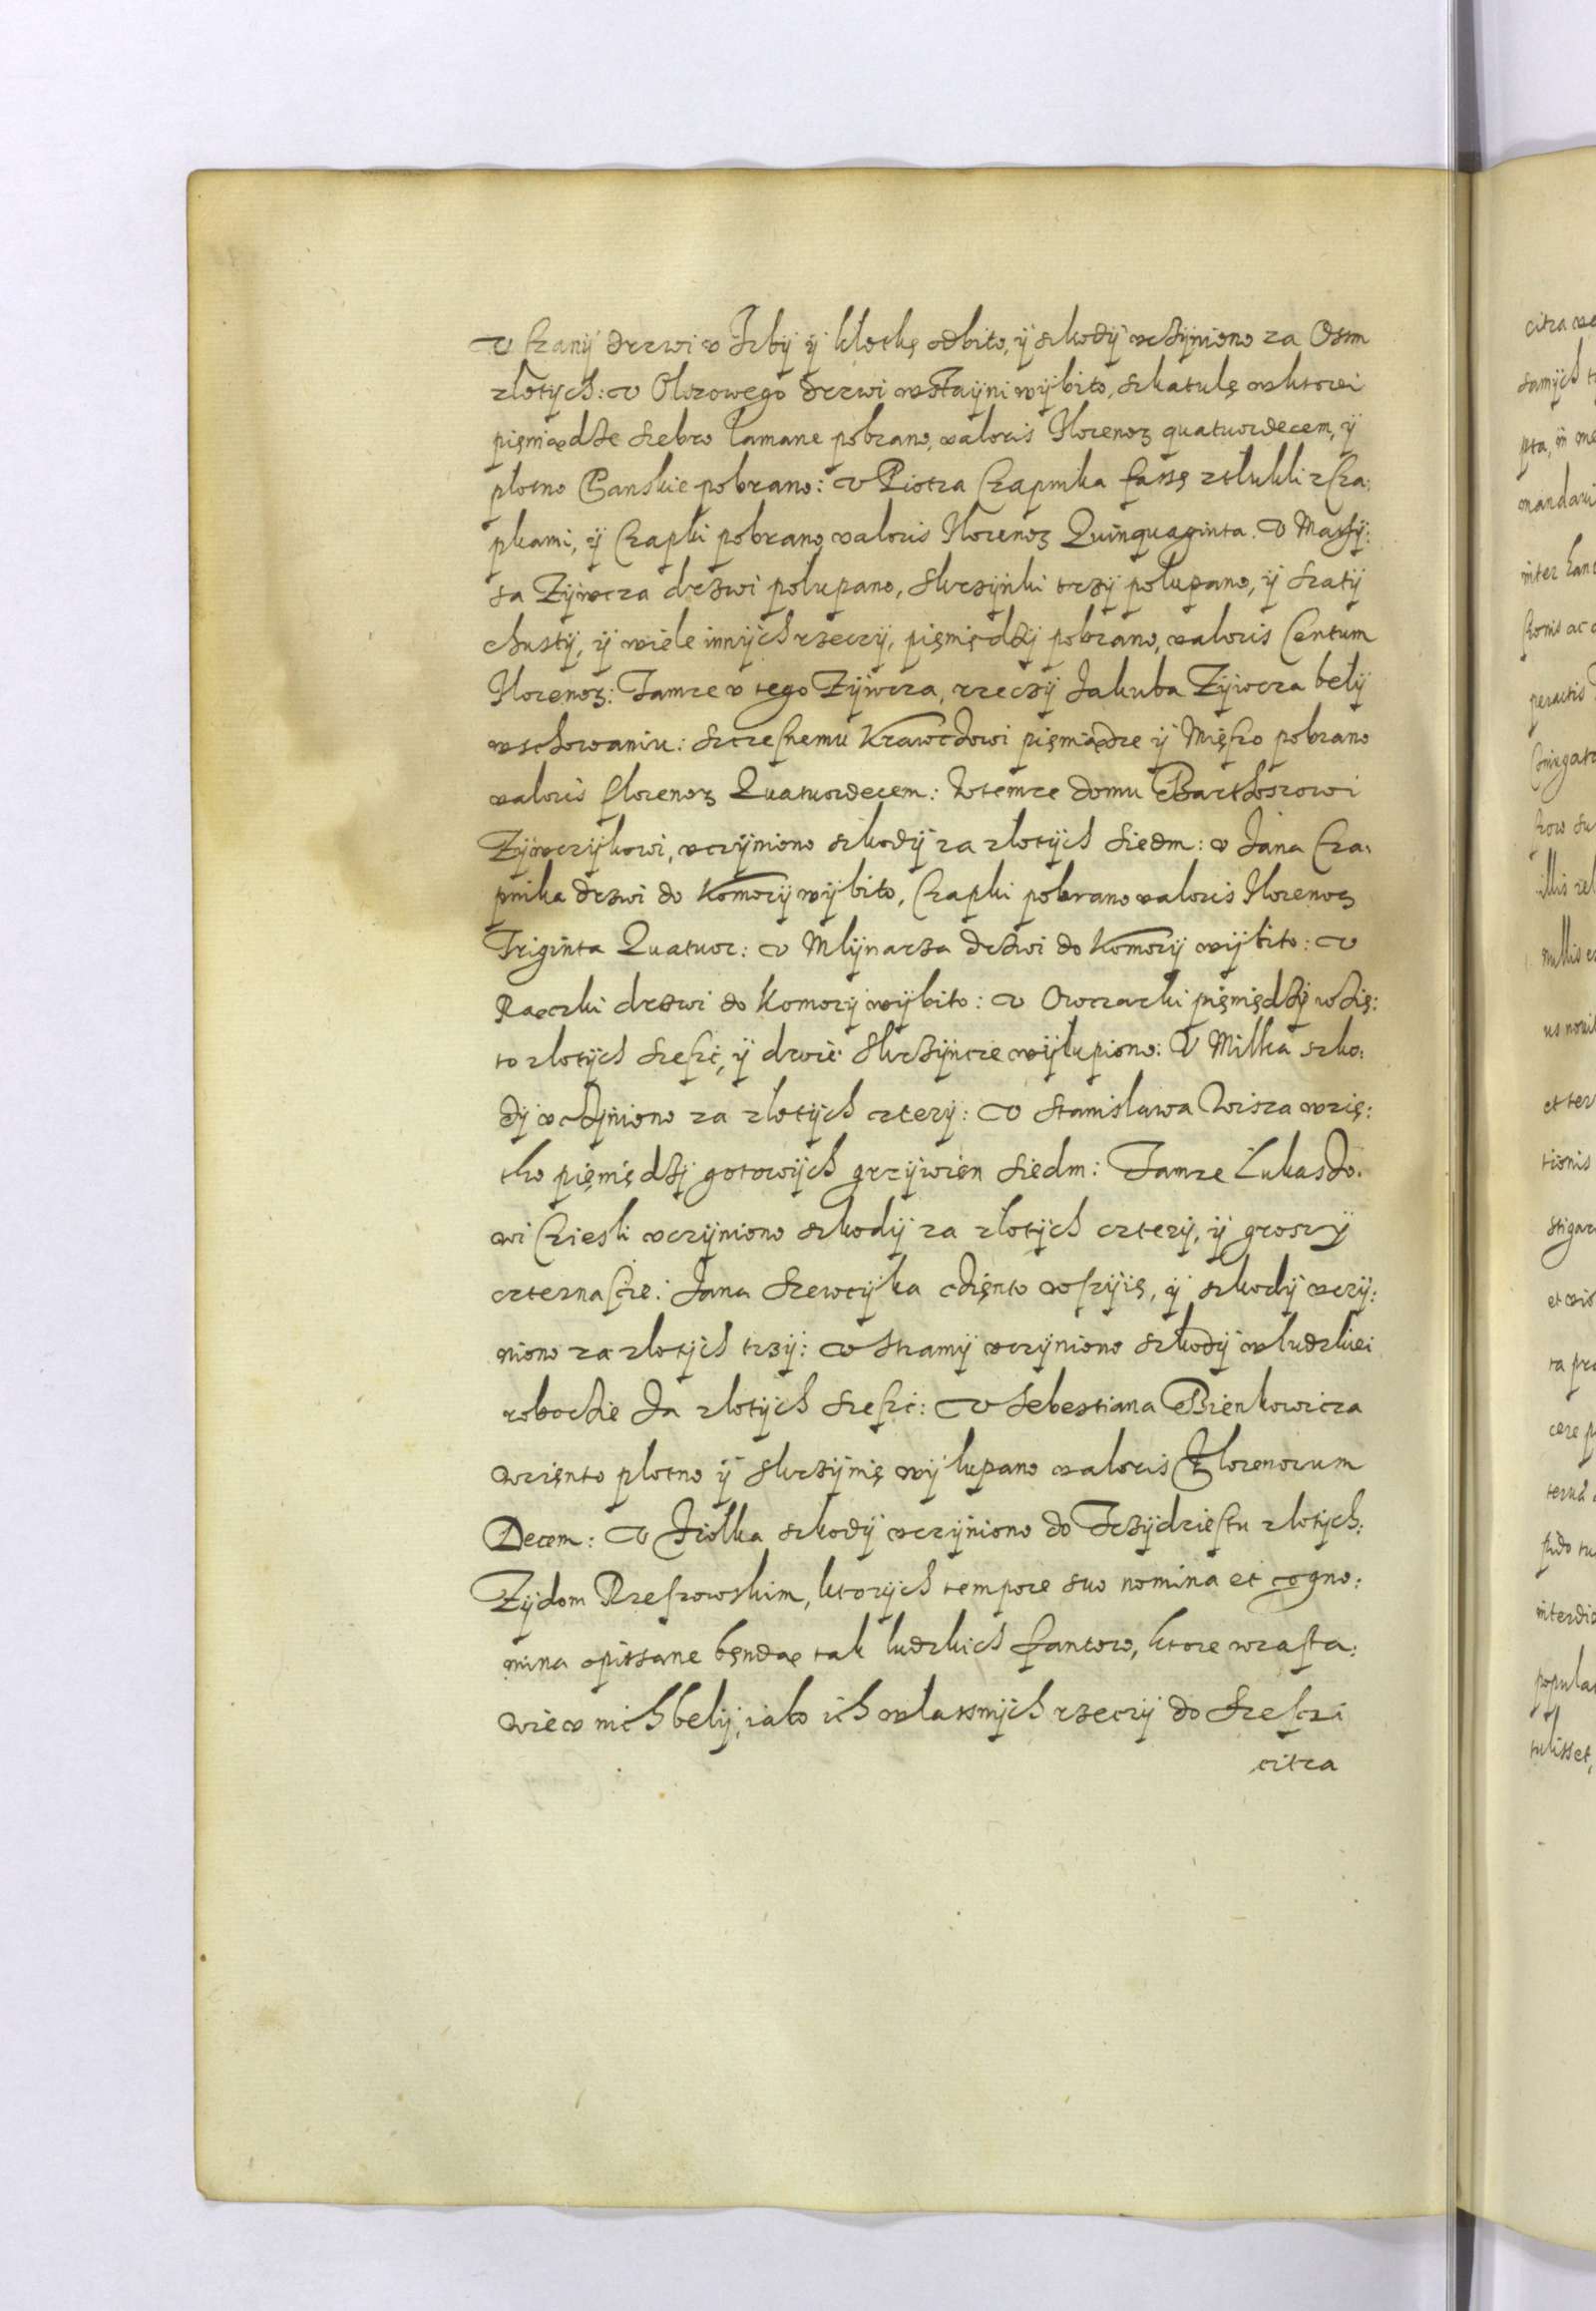 v Czanÿ drzwi v Izbÿ ÿ klotkę odbito, ÿ szkodÿ vczÿniono za Osm
zlotÿch: v Olszowego drzwi v Staÿni wÿbito, szkatulę w ktorei
pięniądze srebro lamane pobrano, valoris Florenoꝝ quatuordecem, ÿ
plotno Panskie pobrano: v Piotra Czapnika fassę ztlukli z Cza:
pkami, ÿ Czapki pobrano valoris Florenoꝝ Quinquaginta. v Matÿ:
sa Zÿwcza drzwi polupano, skrzÿnki trzÿ polupano, ÿ szatÿ
chustÿ, ÿ wiele innÿch rzeczÿ, pięniędzÿ pobrano, valoris Centum
Florenoꝝ: Tamze v tego Zÿwcza, rzeczÿ Jakuba Zÿwcza belÿ
w schowaniu: Szczesnemu Krawczowi pięniądze ÿ Mięszo pobrano
valoris florenoꝝ Quatuordecem: W temze domu Barthoszowi
Zÿwczÿkowi, vczÿniono szkodÿ za zlotÿch siedm: v Jana Cza:
pnika drzwi do Komorÿ wÿbito, Czapki pobrano valoris Florenoꝝ
Triginta Quatuor: v Mlÿnarza drzwi do Komorÿ wÿbito: v
Rączki drzwi do Komorÿ wÿbito: v Owczarki pięniędzÿ wzię:
to zlotÿch szesć, ÿ dwie skrzÿnce wÿlupiono: V Milka szko:
dÿ vczÿniono za zlotÿch czterÿ: v Stanislawa Wisza wzię:
tho pięniędzÿ gotowÿch grzÿwien siedm: Tamze Lukaszo:
wi Ciesli vczÿniono szkodÿ za zlotÿch czterÿ, ÿ groszÿ
czternascie: Jana Szewczÿka cięnto w szÿię, ÿ szkodÿ vczÿ:
niono za zlotÿch trzÿ: v Stramÿ vczÿniono szkodÿ w ludzkiei
robocie za zlotÿch szesć: v Sebestiana Bienkowicza
wzięnto plotno ÿ skrzÿnię wÿlupano valoris Florenorum
Decem: v Ziolka szkodÿ vczÿniono do Trzÿdziestu zlotÿch:
Zÿdom Rzeszowskim, ktorÿch tempore suo nomina et cogno:
mina opissane bęndą tak ludzkich fantow, ktore w zasta:
wie v nich belÿ, iako ich wlasnÿch rzeczÿ do szesci
citra